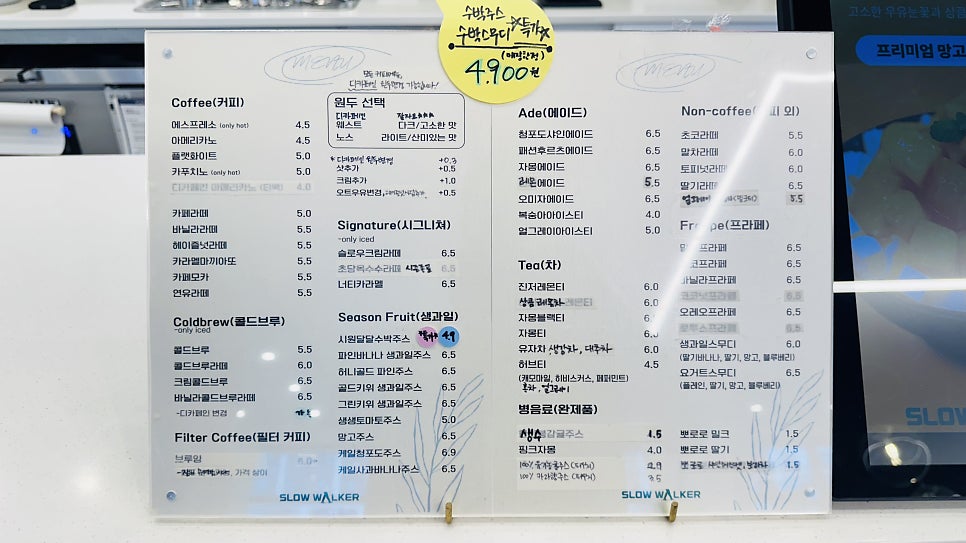 수박주스
수박스무디
특가
(매장한정)
4.900원
고소한 우유눈꽃과 상큼
프리미엄 망고
SLOW
MENU
디카페인 원두변경 가능합니다!
Coffee(커피)
에스프레소 (only hot) 4.5
아메리카노 4.5
플랫화이트 5.0
카푸치노 (only hot) 5.0
디카페인 아메리카노 4.0
카페라떼 5.0
바닐라라떼 5.5
헤이즐넛라떼 5.5
카라멜마끼아또 5.5
카페모카 5.5
연유라떼 5.5
Coldbrew(콜드브루)
-only iced
콜드브루 5.5
콜드브루라떼 6.0
크림콜드브루 6.5
바닐라콜드브루라떼 6.5
-디카페인 변경
Filter Coffee(필터 커피)
브루잉 6.0~
가격 상이
원두 선택
디카페인
웨스트 다크/고소한 맛
노스 라이트/산미있는 맛
* 디카페인 원두변경 +0.3
샷추가 +0.5
크림추가 +1.0
오트우유변경, +0.5
Signature(시그니쳐)
-only iced
슬로우크림라떼 6.5
초당옥수수라떼 6.5
너티카라멜 6.5
Season Fruit(생과일)
시원달달수박주스 특가 4.9
파인바나나 생과일주스 6.5
허니골드 파인주스 6.5
골드키위 생과일주스 6.5
그린키위 생과일주스 6.5
생생토마토주스 5.0
망고주스 6.5
케일청포도주스 6.9
케일사과바나나주스 6.5
SLOW WALKER
MENU
Ade(에이드)
청포도샤인에이드 6.5
패션후르츠에이드 6.5
자몽에이드 6.5
레몬에이드 5.5
오미자에이드 6.5
복숭아아이스티 4.0
얼그레이아이스티 5.0
Tea(차)
진저레몬티 6.0
레몬티
자몽블랙티 6.0
자몽티 6.
유자차 생강차, 대추차 6.0
허브티 4.5
(캐모마일, 히비스커스, 페퍼민트)
홍차, 얼그레이
병음료(완제품)
생수 감귤주스 1.5
핑크자몽 4.0
100% 4.9
100% 3.5
Non-coffee( 피 외)
초코라떼 5.5
말차라떼 6.0
토피넛라떼 6.0
딸기라떼 6.5
5.5
Fr ppe(프라페)
프라페 6.5
코프라페 6.5
바닐라프라페 6.5
6.5
오레오프라페 6.5
6.5
생과일스무디 6.0
(딸기바나나, 딸기, 망고, 블루베리)
요거트스무디 6.5
(플레인, 딸기, 망고, 블루베리)
뽀로로 밀크 1.5
뽀로로 딸기 1.5
뽀로로 1.5
SLOW WALKER